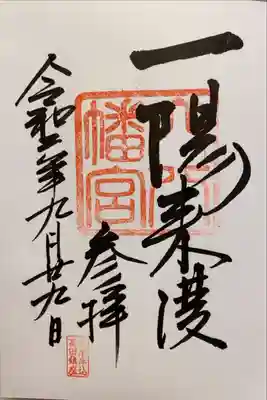 一陽来復
参拝
令和二年九月廿九日
幡宮